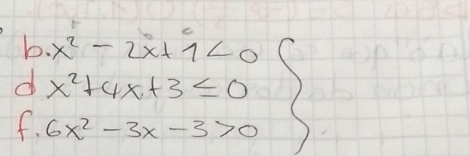 b. x² - 2x + 1 < 0
d x² + 4x + 3 ≤ 0
f. 6x² - 3x - 3 > 0